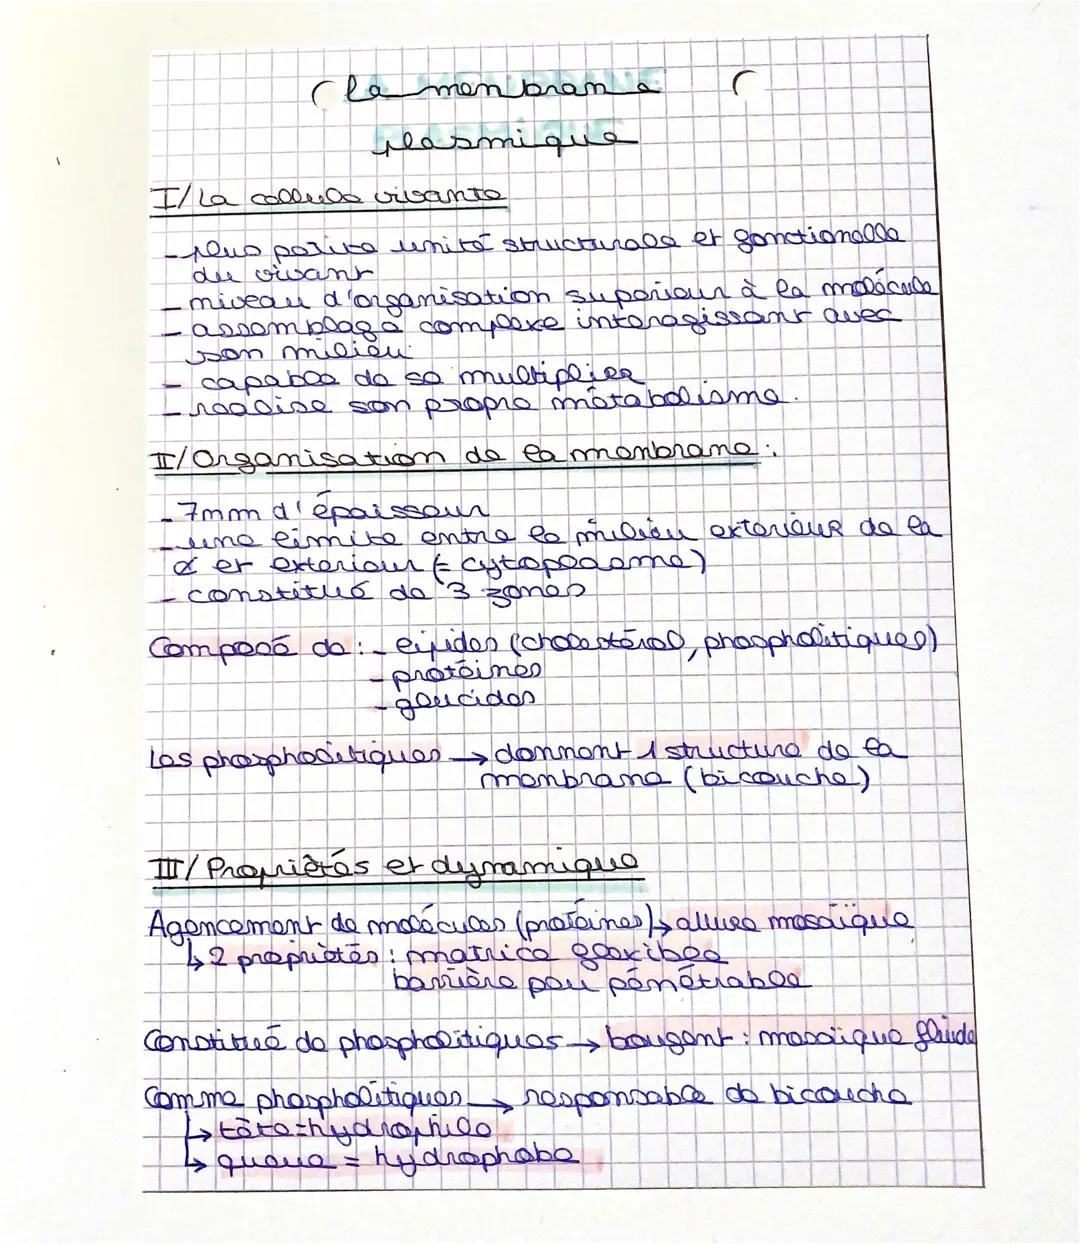 La membrane
plasmique
I/ La cellule vivante
- plus petite unité structurale et fonctionelle
du vivant
- niveau d'organisation superieur à la molécule
- assemblage complexe interagissant avec
son milieu
- capable de se multiplier
- réalise son propre métabolisme.
II/ Organisation de la membrane :
- 7mm d'épaisseur
- une limite entre le milieu exterieur de la
et exterieur (= cytoplasme)
- constitué de 3 zones
Composé de : - lipides (cholestérol, phospholitiques)
- protéines
- glucides
Les phospholitiques → donnent 1 structure de la
membrane (bicouche)
III/ Propriètés et dynamique
Agencement de molécules (protéines) → allure mosaïque
↳ 2 propriètés : matrice flexible
barrière peu pénétrable
Constitué de phospholitiques → bougent : mosaïque fluide
Comme phospholitiques → responsable de bicouche
↳ tête = hydrophile
↳ queue = hydrophobe